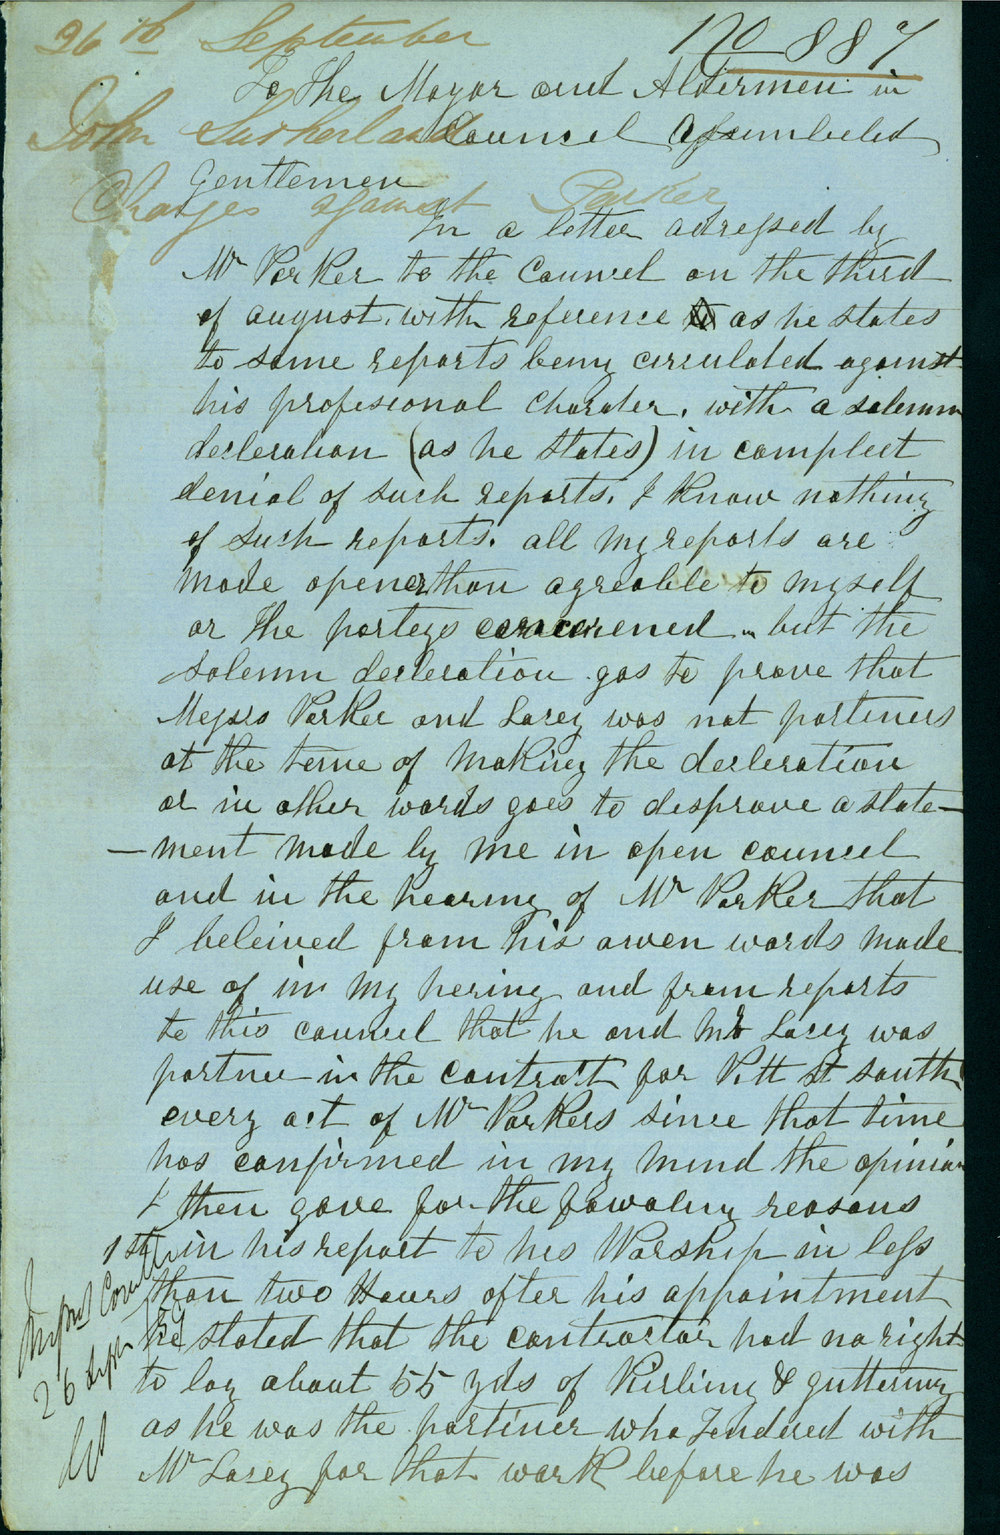 26th September
No 887
To The Mayor and Aldermen in
John Sutherland
Council Assembeled
Gentlemen
Charges against Parker
In a letter adressed by
Mr Parker to the Councel on the third
of august. with reference as he states
to some reports being cerculated against
his profesional Charater. with a solemn
decleration (as he states) in compleet
denial of such reports. I Know nothing
of such reports. all my reports are
made opener than agreable to myself
or the parteys ened but the
solemn decleration gos to prove that
Messrs Parker and Lacey was not partiners
at the teme of making the decleration
or in other words goes to desprove a state-
-ment made by me in open councel
and in the hearing of Mr Parker that
I beleived from his owen words made
use of in my hering and from reports
to this councel that he and Mr Lacey was
partner in the Contratt for Pitt St south
every act of Mr Parkers since that time
has confirmed in my mind the opinion
I then gave for the fowoling reasons
1st in his report to his Worship in less
than two Hours after his appointment
he stated that the contractor had no right
to lay about 55 yds of Kirbing & guttering
as he was the partiner who Tendred with
Mr Lacey for that work before he was
26 Septr /59